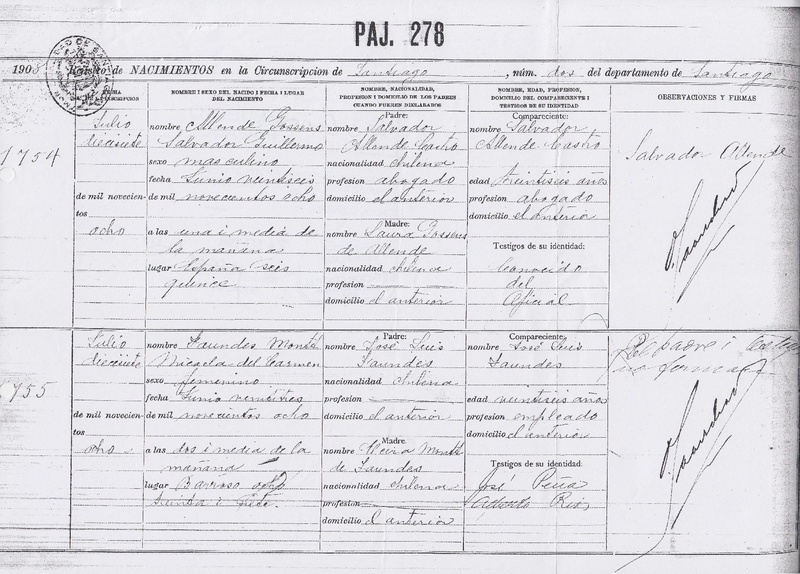 PAJ. 278
190 Registro de NACIMIENTOS en la Circunscripcion de Santiago, núm. dos del departamento de Santiago
FECHA
NOMBRE I SEXO DEL NACIDO I FECHA I LUGAR
DEL NACIMIENTO
NOMBRE, NACIONALIDAD,
PROFESION I DOMICILIO DE LOS PADRES
CUANDO FUEREN DECLARADOS
NOMBRE, EDAD, PROFESION,
DOMICILIO DEL COMPARECIENTE I
TESTIGOS DE SU IDENTIDAD
OBSERVACIONES Y FIRMAS
1754
Julio
diecisiete
de mil novecien-
tos
ocho
nombre Allende Gossens
Salvador Guillermo
sexo masculino
fecha Junio veintiseis
de mil novecientos ocho
a las una i media de
la mañana
lugar España seis
quince
Padre:
nombre Salvador
Allende Castro
nacionalidad chilena
profesion abogado
domicilio el anterior
Madre:
nombre Laura Gossens
de Allende
nacionalidad chilena
profesion
domicilio el anterior
Compareciente:
nombre Salvador
Allende Castro
edad treintiseis años
profesion abogado
domicilio el anterior
Testigos de su identidad:
Conocido
del
Oficial
Salvador Allende
755
Julio
diecisiete
de mil novecien-
tos
ocho
nombre Faundes Montt
Micaela del Carmen
sexo femenino
fecha Junio
de mil novecientos ocho
a las dos i media de la
mañana
lugar Barroso ocho
treinta i siete
Padre:
nombre José Luis
Faundes
nacionalidad chilena
profesion
domicilio el anterior
Madre:
nombre Montt
de Faundes
nacionalidad chilena
profesion
domicilio el anterior
Compareciente:
nombre José Luis
Faundes
edad veintiseis años
profesion empleado
domicilio el anterior
Testigos de su identidad:
José Peña
Alberto Rios
padre i
no firma